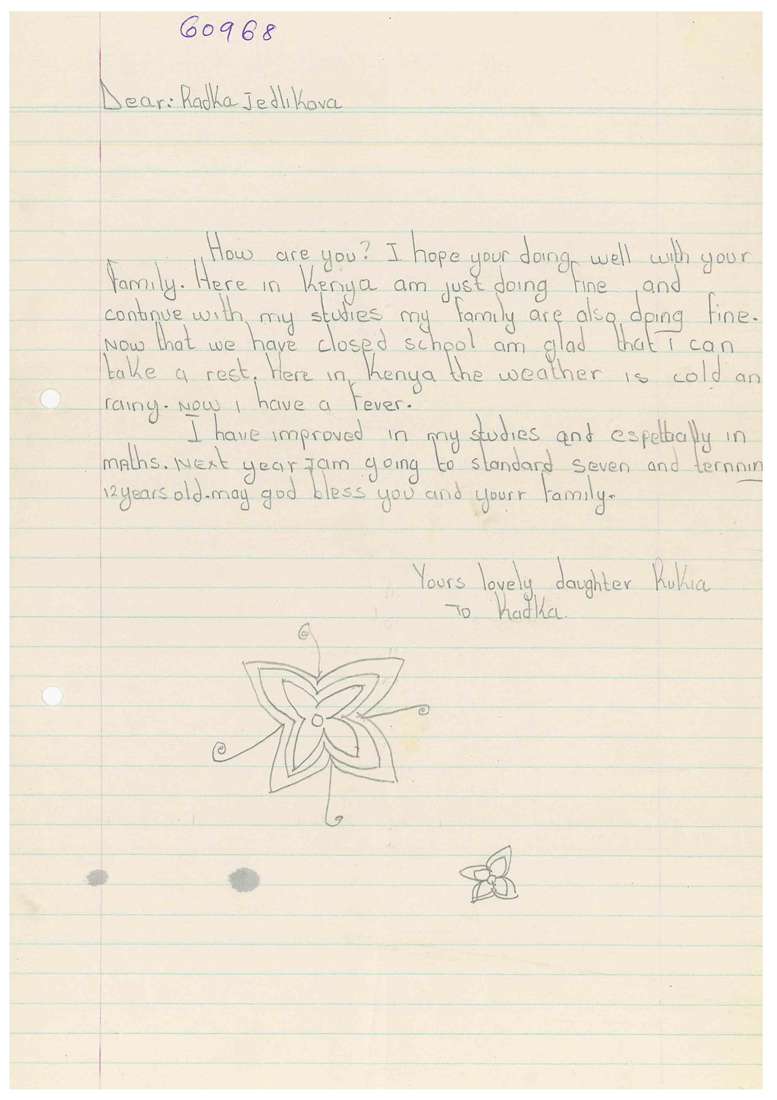 60968
Dear: Radka Jedlikova
How are you? I hope your doing well with your
family. Here in Kenya am just doing fine and
continue with my studies my family are also doing fine.
Now that we have closed school am glad that i can
take a rest. Here in Kenya the weather is cold an
rainy. Now i have a fever.
I have improved in my studies and espetbally in
maths. Next year Iam going to standard seven and ternnin
12years old. may god bless you and yourr family.
Yours lovely daughter Rukia
To Radka.